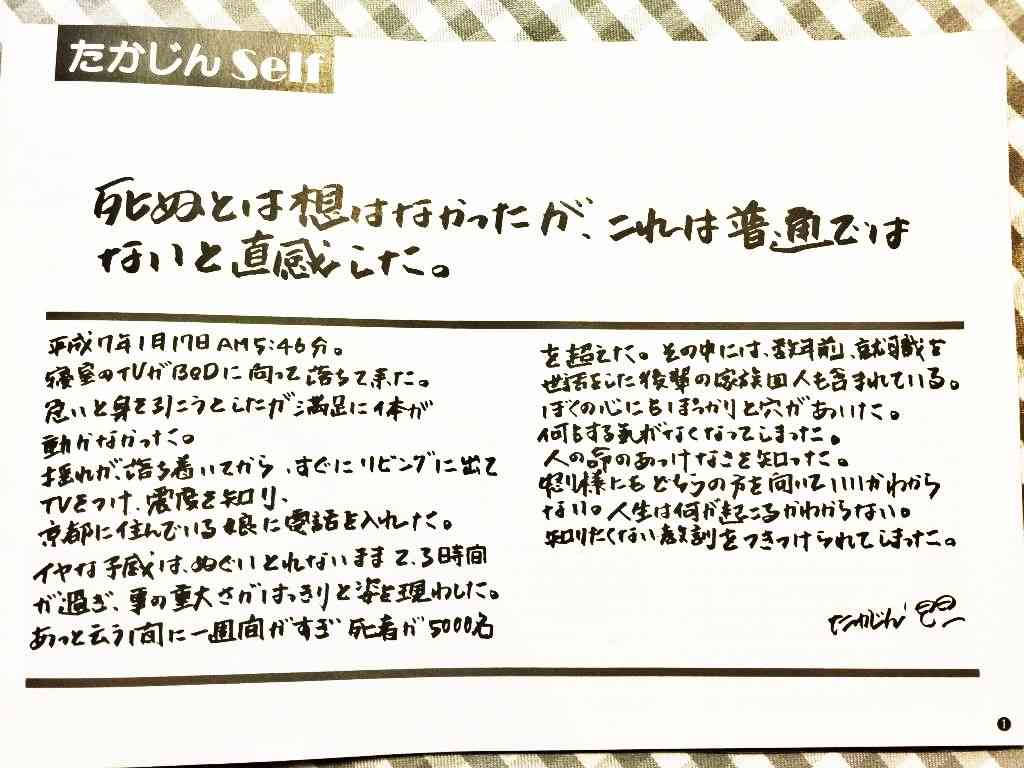 たかじん Self
死ぬとは想はなかったが、これは普通では
ないと直感した。
平成7年1月17日AM5:46分。
寝室のTVがBEDに向って落ちて来た。
危いと身を引こうとしたが満足に体が
動かなかった。
揺れが、落ち着いてから、すぐにリビングに出て
TVをつけ、震度を知り、
京都に住んでいる娘に電話を入れた。
イヤな予感は、ぬぐいとれないまま2、3時間
が過ぎ、事の重大さがはっきりと姿を現わした。
あっと云う間に一週間がすぎ 死者が5000名
を超えた。その中には、数年前、就職を
世話をした後輩の家族四人も含まれている。
ぼくの心にもぽっかりと穴があいた。
何もする気がなくなってしまった。
人の命のあっけなさを知った。
怒り様にもどちらの方を向いていいかわから
ない。人生は何が起こるかわからない。
知りたくない教訓をつきつけられてしまった。
たかじん
1